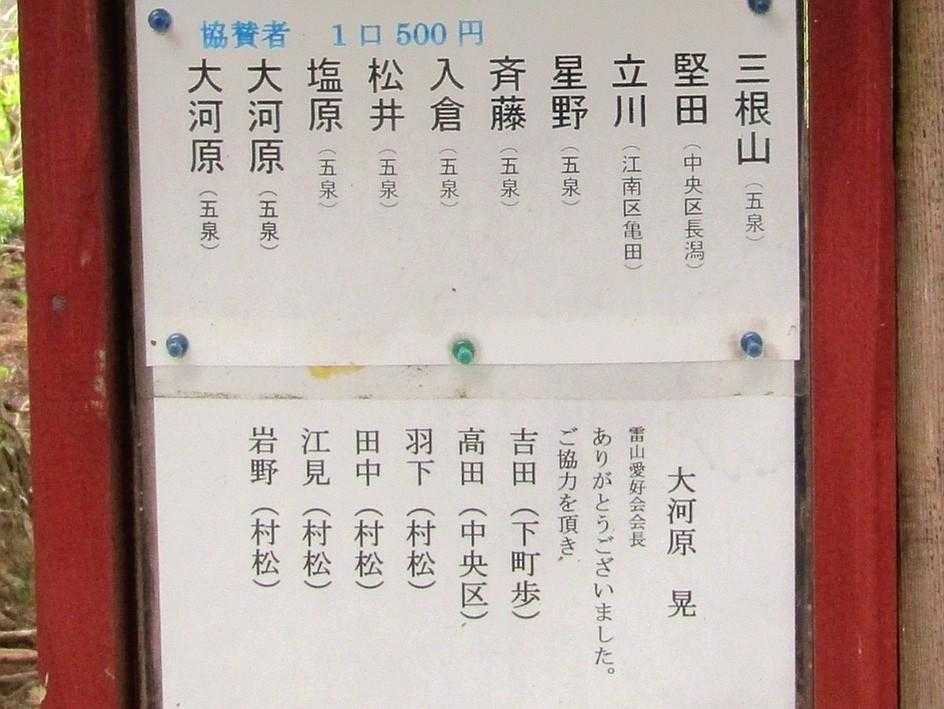 協賛者　1口500円
三根山（五泉）
堅田（中央区長潟）
立川（江南区亀田）
星野（五泉）
斉藤（五泉）
入倉（五泉）
松井（五泉）
塩原（五泉）
大河原（五泉）
大河原（五泉）
大河原　晃
雷山愛好会会長
ありがとうございました。
ご協力を頂き、
吉田（下町歩）
高田（中央区）
羽下（村松）
田中（村松）
江見（村松）
岩野（村松）